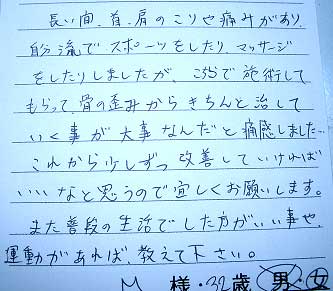 長い間、首、肩のこりや痛みがあり、
自分流でスポーツをしたり、マッサージ
をしたりしましたが、こちらで施術して
もらって、骨の歪みからきちんと治して
いく事が大事なんだと痛感しました…
これから少しずつ改善していければ
いいなと思うので宜しくお願いします。
また普段の生活でした方がいい事や、
運動があれば教えて下さい。
M 様・32歳 男・女